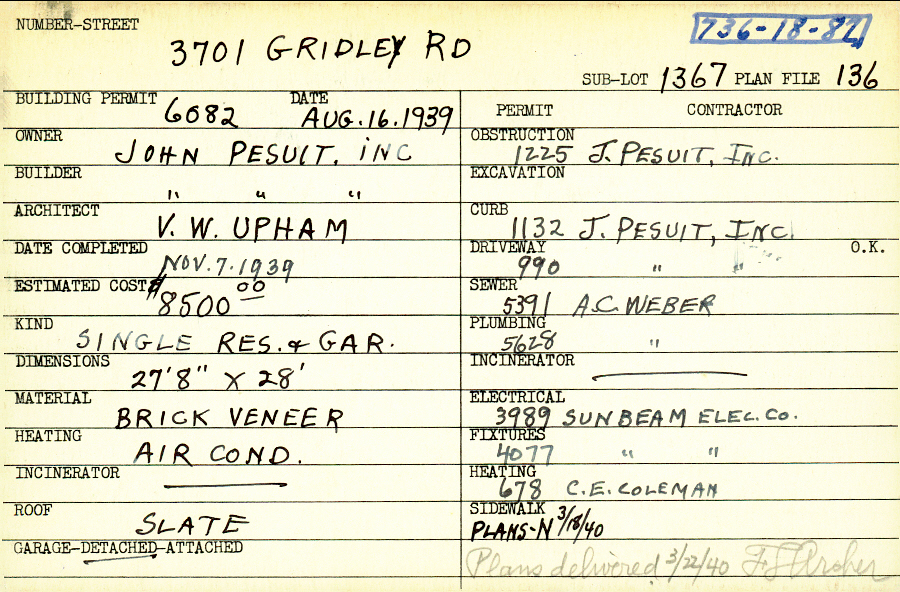 NUMBER-STREET
3701 GRIDLEY RD
736-18-82
SUB-LOT 1367 PLAN FILE 136
BUILDING PERMIT 6082 DATE AUG. 16. 1939
OWNER JOHN PESUIT. INC
BUILDER " " "
ARCHITECT V. W. UPHAM
DATE COMPLETED NOV. 7. 1939
ESTIMATED COST $8500 00
KIND SINGLE RES. & GAR.
DIMENSIONS 27'8" X 28'
MATERIAL BRICK VENEER
HEATING AIR COND.
INCINERATOR —
ROOF SLATE
GARAGE-DETACHED-ATTACHED
PERMIT CONTRACTOR
OBSTRUCTION 1225 J. PESUIT, INC.
EXCAVATION
CURB 1132 J. PESUIT, INC.
DRIVEWAY 990 " " O.K.
SEWER 5391 A.C. WEBER
PLUMBING 5628 "
INCINERATOR —
ELECTRICAL 3989 SUNBEAM ELEC. CO.
FIXTURES 4077 " "
HEATING 678 C.E. COLEMAN
SIDEWALK PLANS-N 3/18/40
Plans delivered 3/22/40